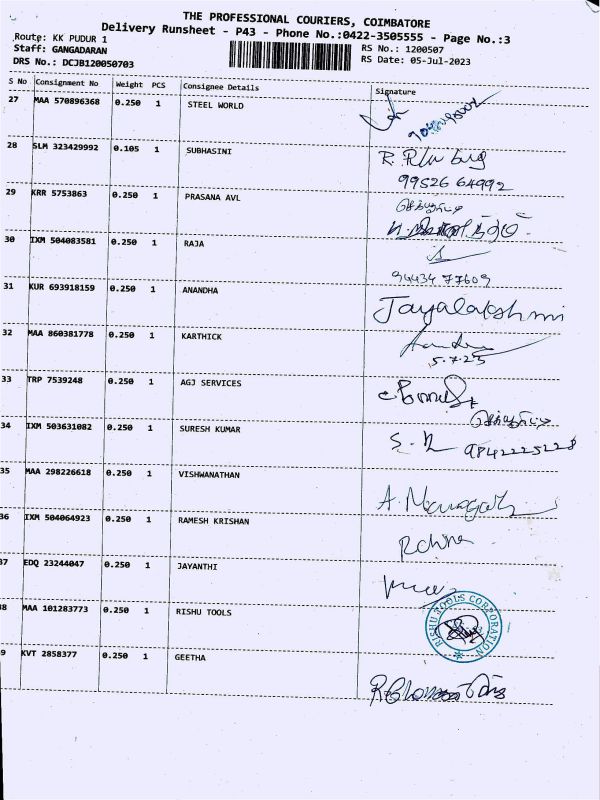 THE PROFESSIONAL COURIERS, COIMBATORE
Delivery Runsheet - P43 - Phone No.:0422-3505555 - Page No.:3
Route: KK PUDUR 1
Staff: GANGADARAN
DRS No.: DCJB120050703
RS No.: 1200507
RS Date: 05-Jul-2023
S No Consignment No Weight PCS Consignee Details Signature
27 MAA 570896368 0.250 1 STEEL WORLD
28 SLM 323429992 0.105 1 SUBHASINI
99526 64992
29 KRR 5753863 0.250 1 PRASANA AVL
30 IXM 504083581 0.250 1 RAJA
94434 77609
31 KUR 693918159 0.250 1 ANANDHA
Jayalakshmi
32 MAA 860381778 0.250 1 KARTHICK
5.7.23
33 TRP 7539248 0.250 1 AGJ SERVICES
34 IXM 503631082 0.250 1 SURESH KUMAR
9842225228
35 MAA 298226618 0.250 1 VISHWANATHAN
36 IXM 504064923 0.250 1 RAMESH KRISHAN
37 EDQ 23244047 0.250 1 JAYANTHI
38 MAA 101283773 0.250 1 RISHU TOOLS
RISHU TOOLS CORPORATION
39 KVT 2858377 0.250 1 GEETHA